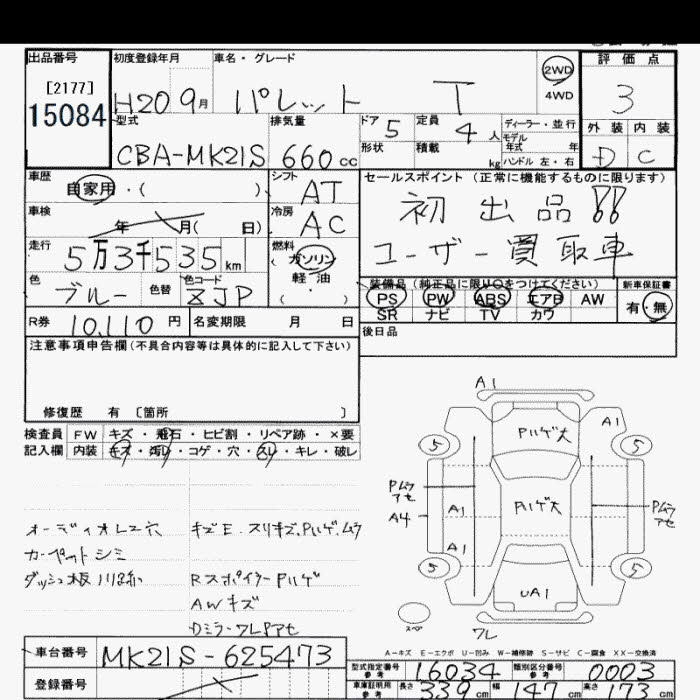 出品番号
[2177]
15084
初度登録年月
H20 9月
車名・グレード
パレット T
2WD
4WD
評価点
3
外装 内装
D C
型式
CBA-MK21S
排気量
660 cc
ドア 5
定員 4 人
形状
積載 kg
ディーラー・並行
モデル年式 年
ハンドル 左・右
車歴
自家用・( )
車検
年 月( 日)
走行
5万3千535 km
色
ブルー
色替
色コード
ZJP
シフト
AT
冷房
AC
燃料
ガソリン
軽油
( )
セールスポイント (正常に機能するものに限ります)
初出品!!
ユーザー買取車
装備品 (純正品に限り○をつけてください)
PS PW ABS エアB AW
SR ナビ TV カワ
新車保証書
有・無
後日品
R券 10,110 円
名変期限 月 日
注意事項申告欄(不具合内容等は具体的に記入して下さい)
修復歴 有 〔箇所 〕
検査員
記入欄
FW キズ・飛石・ヒビ割・リペア跡・×要
内装 キズ・汚レ・コゲ・穴・スレ・キレ・破レ
オーディオレス穴
カーペットシミ
ダッシュ板
キズE.スリキズ.Pハゲ.ムラ
RスポイラーPハゲ
AWキズ
A1
Pハゲ大
A1
5
5
Pムラ
アセ
A4
A1
A1
Pハゲ大
Pムラ
アセ
5
5
UA1
スペア
ワレ
A－キズ E－エクボ U－凹み W－補修跡 S－サビ C－腐食 XX－交換済
車台番号
MK21S-625473
登録番号
型式指定番号
参考
16034
類別区分番号
参考
0003
車庫証明用
参考
長さ 339 cm
幅 147 cm
高さ 173 cm